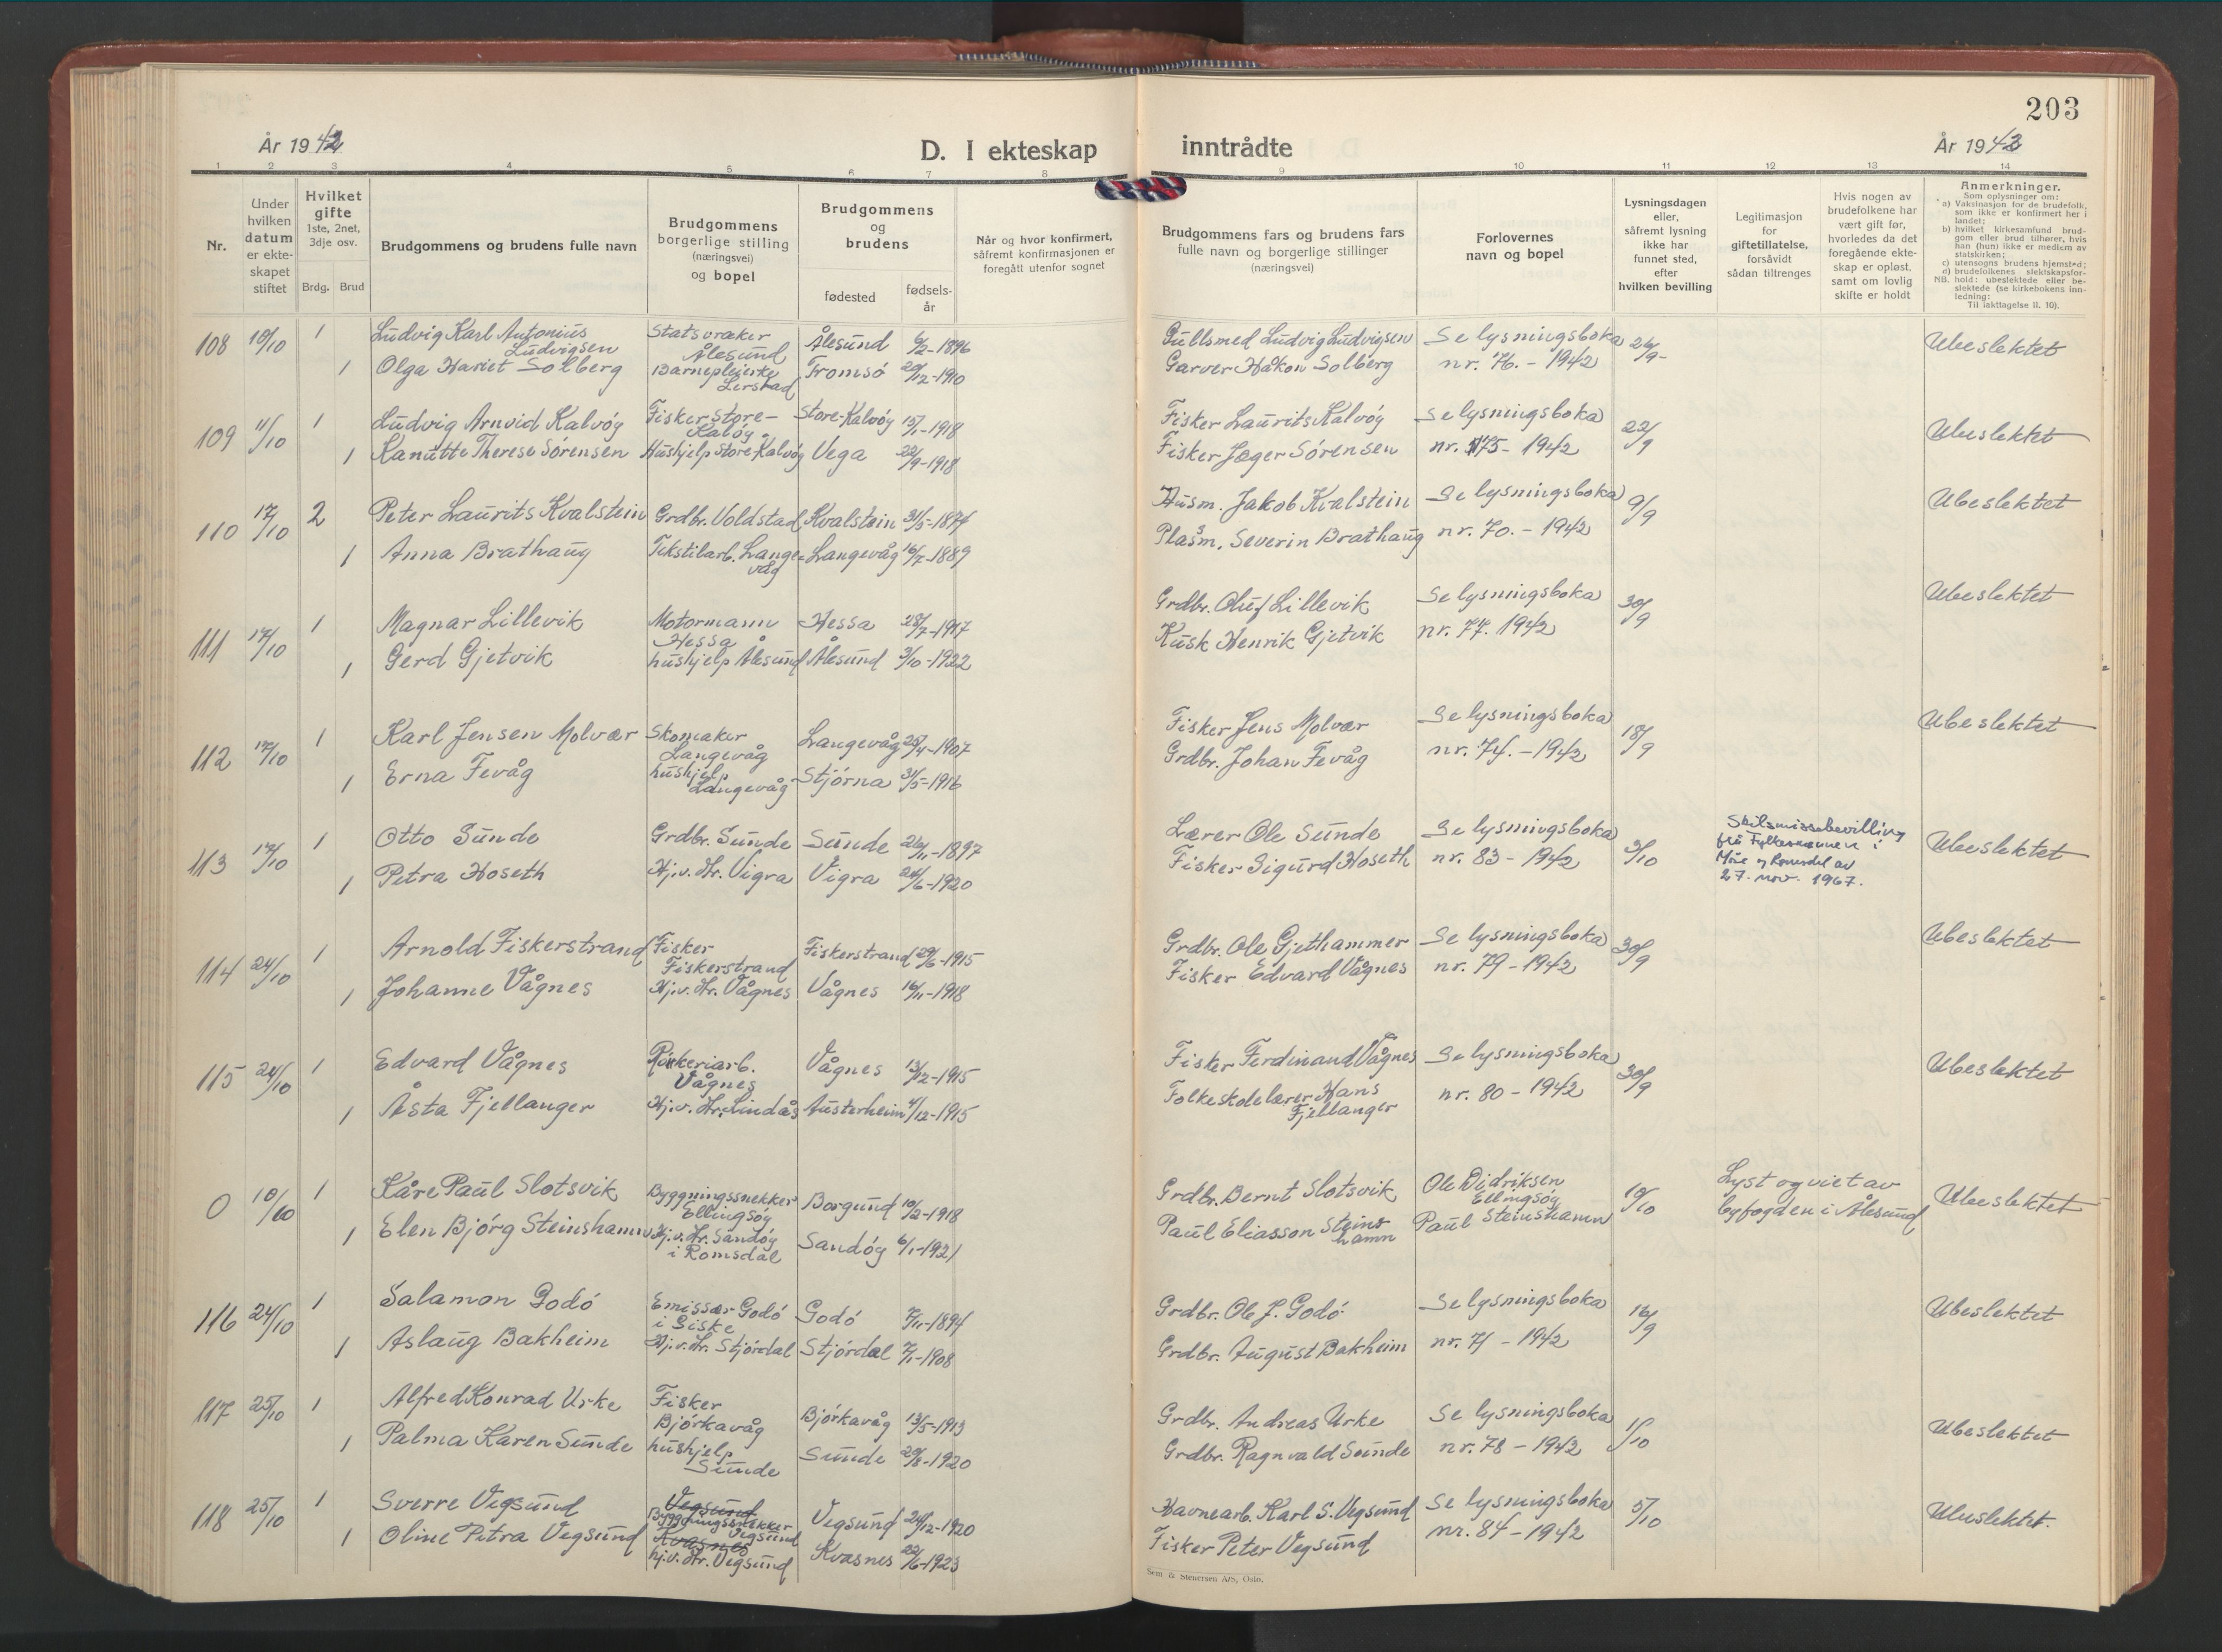 203
År 1942
D. I ekteskap
inntrådte
År 1942
1 2 3 4 5 6 7 8 9 10 11 12 13 14
Nr.
Under
hvilken
datum
er ekte-
skapet
stiftet
Hvilket
gifte
1ste, 2net,
3dje osv.
Brdg. Brud
Brudgommens og brudens fulle navn
Brudgommens
borgerlige stilling
(næringsvei)
og bopel
Brudgommens
og
brudens
fødested
fødsels-
år
Når og hvor konfirmert,
såfremt konfirmasjonen er
foregått utenfor sognet
Brudgommens fars og brudens fars
fulle navn og borgerlige stillinger
(næringsvei)
Forlovernes
navn og bopel
Lysningsdagen
eller,
såfremt lysning
ikke har
funnet sted,
efter
hvilken bevilling
Legitimasjon
for
giftetillatelse,
forsåvidt
sådan tiltrenges
Hvis nogen av
brudefolkene har
vært gift før,
hvorledes da det
foregående ekte-
skap er opløst,
samt om lovlig
skifte er holdt
Anmerkninger.
Som oplysninger om:
a) Vaksinasjon for de brudefolk,
som ikke er konfirmert her i
landet;
b) hvilket kirkesamfund brud-
gom eller brud tilhører, hvis
han (hun) ikke er medlem av
statskirken;
c) utensogns brudens hjemsted;
d) brudefolkenes slektskapsfor-
NB. hold: ubeslektede eller be-
slektede (se kirkebokens inn-
ledning:
Til iakttagelse II. 10).
108 10/10 1 Ludvig Karl Antonius Ludvigsen Statsvraker Ålesund Ålesund 6/2-1896 Gullsmed Ludvig Ludvigsen Se lysningsboka 26/9- Ubeslektet
1 Olga Hariet Solberg Barnepleierke Lerstad Tromsö 20/12-1910 Garver Håkon Solberg nr. 76. - 1942
109 11/10 1 Ludvig Arnvid Kalvöy Fisker Store-Kalöy Store-Kalvöy 15/1-1918 Fisker Laurits Kalvöy Se lysningsboka 22/9 Ubeslektet
1 Kanutte Therese Sörensen Hushjelp Store-Kalvöy Vega 22/9-1918 Fisker Jæger Sörensen nr. 75- 1942
110 17/10 2 Peter Laurits Kvalstein Grdbr. Voldstad Kvalstein 31/5-1874 Husm. Jakob Kvalstein Se lysningsboka 9/9 Ubeslektet
1 Anna Brathaug Tekstilarb. Langevåg Langevåg 16/7-1889 Plasm. Severin Brathaug nr. 70. - 1942
111 17/10 1 Magnar Lillevik Motormann Hessa Hessa 28/7-1917 Grdbr. Oluf Lillevik Se lysningsboka 30/9 Ubeslektet
1 Gerd Gjetvik hushjelp Ålesund Ålesund 3/10-1922 Kusk Henrik Gjetvik nr. 77. 1942
112 17/10 1 Karl Jensen Molvær Skomaker Langevåg Langevåg 25/4-1907 Fisker Jens Molvær Se lysningsboka 18/9 Ubeslektet
1 Erna Fevåg hushjelp Langevåg Stjörna 31/5-1916 Grdbr. Johan Fevåg nr. 74. - 1942
113 17/10 1 Otto Sunde Grdbr. Sunde Sunde 26/11-1897 Lærer Ole Sunde Se lysningsboka 3/10 Skilsmissebevilling frå Fylkesmannen i Möre og Romsdal av 27. nov. 1967. Ubeslektet
1 Petra Hoseth Hj.v. Hr. Vigra Vigra 24/6-1920 Fisker Sigurd Hoseth nr. 83 - 1942
114 24/10 1 Arnold Fiskerstrand Fisker Fiskerstrand Fiskerstrand 29/6-1915 Grdbr. Ole Gjethammer Se lysningsboka 30/9 Ubeslektet
1 Johanne Vågnes Hj.v. Hr. Vågnes Vågnes 16/11-1918 Fisker Edvard Vågnes nr. 79 - 1942
115 24/10 1 Edvard Vågnes Rökeriarb. Vågnes Vågnes 13/12-1915 Fisker Ferdinand Vågnes Se lysningsboka 30/9 Ubeslektet
1 Åsta Fjellanger Hj.v. Hr. Lindås Austerheim 4/12-1915 Folkeskolelærer Hans Fjellanger nr. 80 - 1942
0 10/10 1 Kåre Paul Slotsvik Byggningssnekker Ellingsöy Borgund 10/2-1918 Grdbr. Bernt Slotsvik Ole Didriksen Ellingsöy 10/10 Lyst og viet av byfogden i Ålesund Ubeslektet
1 Elen Björg Steinshamn Hj.v. Hr. Sandöy i Romsdal Sandöy 6/1-1921 Paul Eliasson Steinshamn Paul Steinshamn
116 24/10 1 Salamon Godö Emissær Godö i Giske Godö 7/11-1894 Grdbr. Ole J. Godö Se lysningsboka 16/9 Ubeslektet
1 Aslaug Bakheim Hj.v. Hr. Stjördal Stjördal 7/1-1908 Grdbr. August Bakheim nr. 71 - 1942
117 25/10 1 Alfred Konrad Urke Fisker Björkavåg Björkavåg 13/5-1913 Grdbr. Andreas Urke Se lysningsboka 1/10 Ubeslektet
1 Palma Karen Sunde hushjelp Sunde Sunde 20/8-1920 Grdbr. Ragnvald Sunde nr. 78 - 1942
118 25/10 1 Sverre Vegsund Vegsund Byggningssnekker Vegsund Vegsund 24/12-1920 Havnearb. Karl S. Vegsund Se lysningsboka 5/10 Ubeslektet.
1 Oline Petra Vegsund Kvasnes hj.v. Hr. Vegsund Kvasnes 22/6-1923 Fisker Peter Vegsund nr. 84 - 1942
Sem & Stenersen A/S, Oslo.